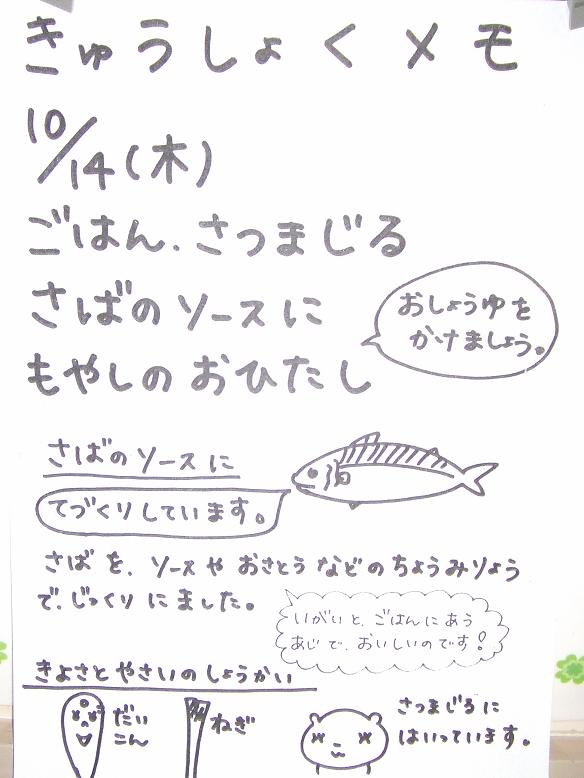 きゅうしょくメモ
10/14(木)
ごはん.さつまじる
さばのソースに
もやしのおひたし
おしょうゆを
かけましょう。
さばのソースに
てづくりしています。
さばを、ソースやおさとうなどのちょうみりょう
で、じっくりにました。
いがいと、ごはんにあう
あじで、おいしいのです!
きよさとやさいのしょうかい
だい
こん
ねぎ
さつまじるに
はいっています。